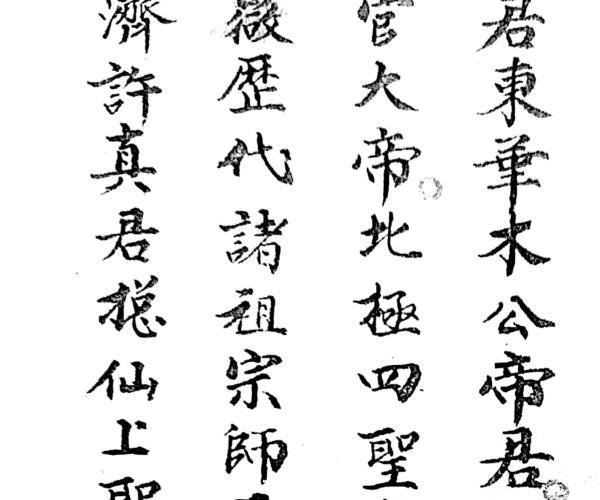 君東華木公帝君
官大帝北極四聖
嶽歷代諸祖宗師
濟許真君揔仙上聖